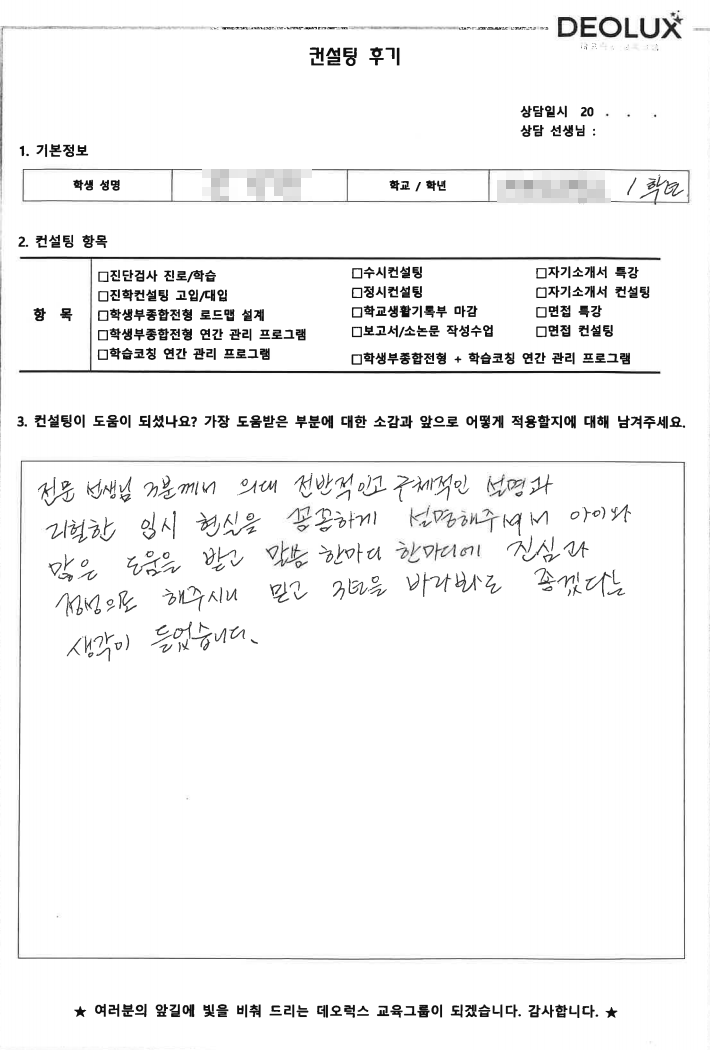 DEOLUX
데오럭스 교육그룹
컨설팅 후기
상담일시 20 . . .
상담 선생님 :
1. 기본정보
학생 성명 학교 / 학년 1학년
2. 컨설팅 항목
항 목
□진단검사 진로/학습 □수시컨설팅 □자기소개서 특강
□진학컨설팅 고입/대입 □정시컨설팅 □자기소개서 컨설팅
□학생부종합전형 로드맵 설계 □학교생활기록부 마감 □면접 특강
□학생부종합전형 연간 관리 프로그램 □보고서/소논문 작성수업 □면접 컨설팅
□학습코칭 연간 관리 프로그램 □학생부종합전형 + 학습코칭 연간 관리 프로그램
3. 컨설팅이 도움이 되셨나요? 가장 도움받은 부분에 대한 소감과 앞으로 어떻게 적용할지에 대해 남겨주세요.
전문 선생님 3분께서 의대 전반적인고 구체적인 설명과
리얼한 입시 현실을 꼼꼼하게 설명해주셔서 아이와
많은 도움을 받고 말씀 한마디 한마디에 진심과
정성의로 해주시니 믿고 3년을 바라봐도 좋겠다는
생각이 들었습니다.
★ 여러분의 앞길에 빛을 비춰 드리는 데오럭스 교육그룹이 되겠습니다. 감사합니다. ★